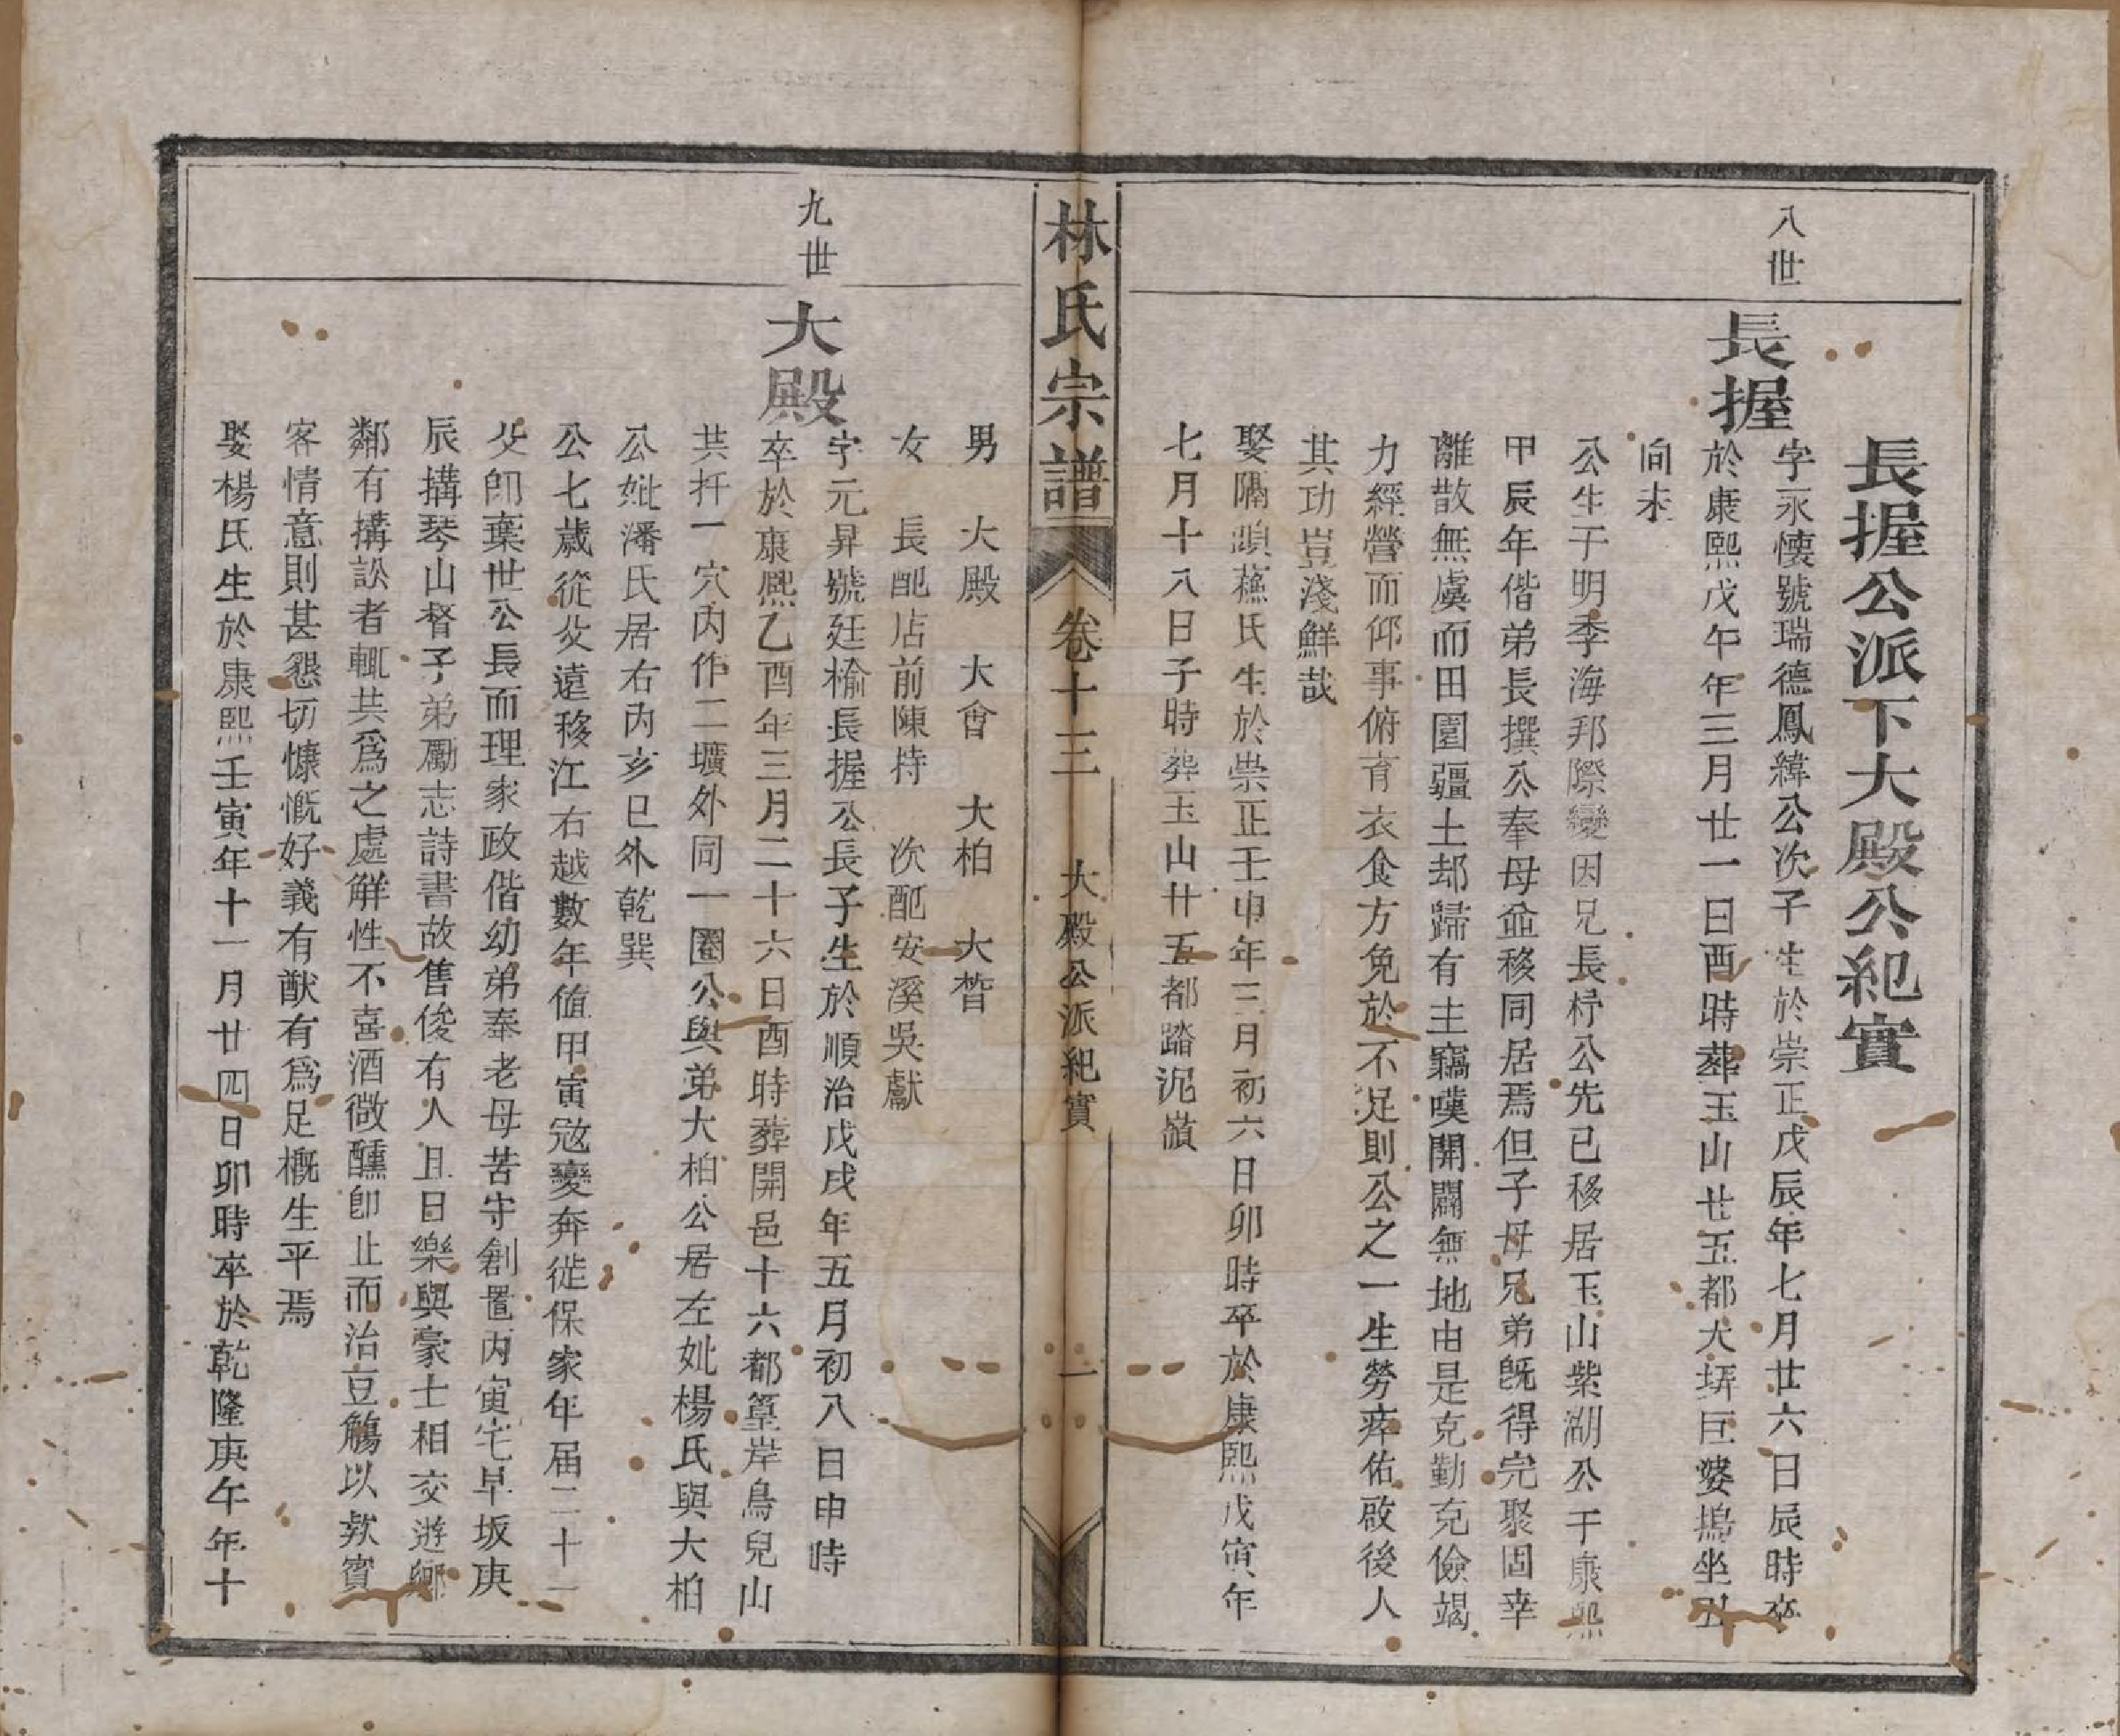 長握公派下大殿公紀實
八世
長握
字永懷號瑞德鳳緯公次子生於崇正戊辰年七月廿六日辰時卒
於康熙戊午年三月廿一日酉時葬玉山廿五都大垪巨婆塢坐丑
向未
公生于明季海邦際變因兄長杼公先已移居玉山紫湖公于康熙
甲辰年偕弟長撰公奉母僉移同居焉但子母兄弟旣得完聚固幸
離散無虞而田園疆土却歸有主竊嘆開闢無地由是克勤克儉竭
力經營而仰事俯育衣食方免於不足則公之一生勞瘁佑啟後人
其功豈淺鮮哉
娶隔頭蘓氏生於崇正壬申年三月初六日卯時卒於康熙戊寅年
七月十八日子時葬玉山廿五都踏泥嶺
林氏宗譜
卷十三
大殿公派紀實
一
男 大殿 大會 大柏 大㬱
女 長配店前陳持 次配安溪吳獻
九世
大殿
字元昇號廷榆長握公長子生於順治戊戌年五月初八日申時
卒於康熙乙酉年三月二十六日酉時葬開邑十六都篁岸鳥兒山
共扦一穴內作二壙外同一圈公與弟大柏公居左妣楊氏與大柏
公妣潘氏居右內亥巳外乾巽
公七歲從父遠移江右越數年値甲寅寇變奔徙保家年届二十一
父卽棄世公長而理家政偕幼弟奉老母苦守創置丙寅宅早坂庚
辰搆琴山督子弟勵志詩書故售俊有人且日樂與豪士相交遊鄉
鄰有搆訟者輒共爲之處解性不喜酒微醺卽止而治豆觴以欵賓
客情意則甚懇切慷慨好義有猷有爲足概生平焉
娶楊氏生於康熙壬寅年十一月廿四日卯時卒於乾隆庚午年十